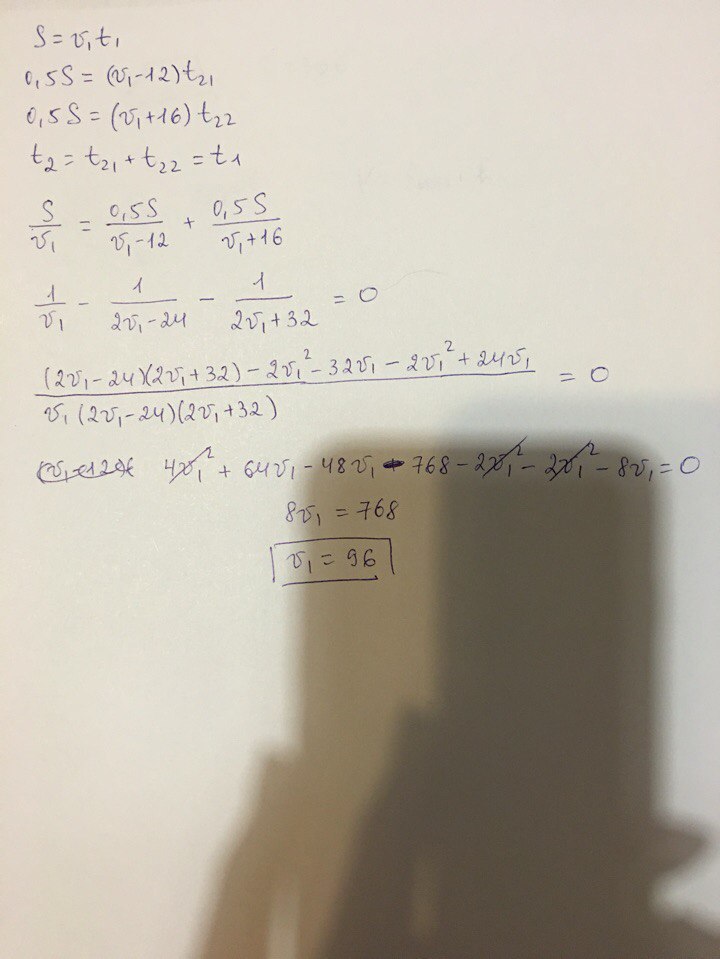 S = v₁t₁
0,5S = (v₁-12)t₂₁
0,5S = (v₁+16)t₂₂
t₂ = t₂₁ + t₂₂ = t₁
S/v₁ = 0,5S/(v₁-12) + 0,5S/(v₁+16)
1/v₁ - 1/(2v₁-24) - 1/(2v₁+32) = 0
((2v₁-24)(2v₁+32) - 2v₁² - 32v₁ - 2v₁² + 24v₁)/(v₁(2v₁-24)(2v₁+32)) = 0
4v₁² + 64v₁ - 48v₁ - 768 - 2v₁² - 2v₁² - 8v₁ = 0
8v₁ = 768
v₁ = 96